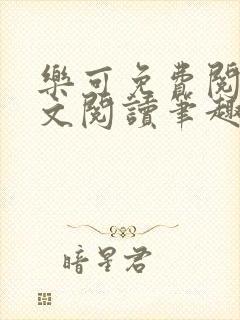 樂可免費閱
文閱讀筆趣
暗星君